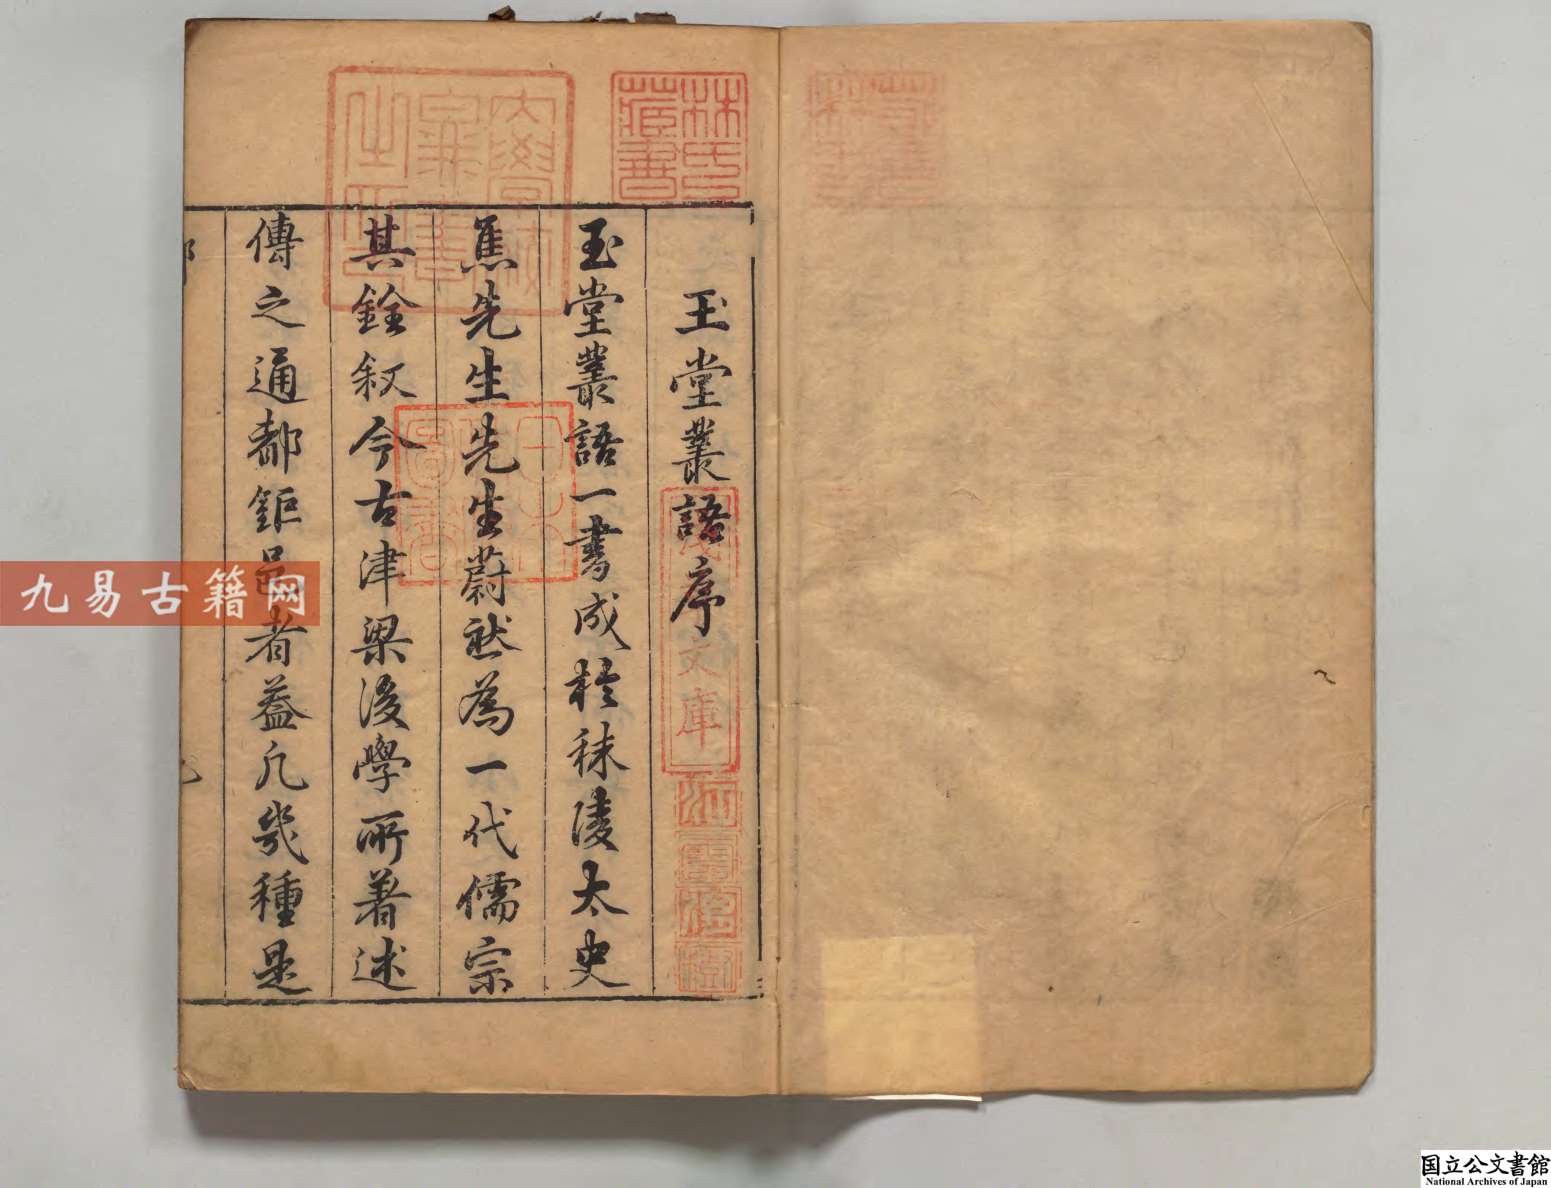 玉堂叢語序
玉堂叢語一書成於秣陵太史
焦先生先生蔚然為一代儒宗
其銓叙今古津梁後學所著述
傳之通都鉅邑者葢凡幾種是
林氏藏書
日本政府圖書
淺草文庫
九易古籍网
国立公文書館
National Archives of Japan